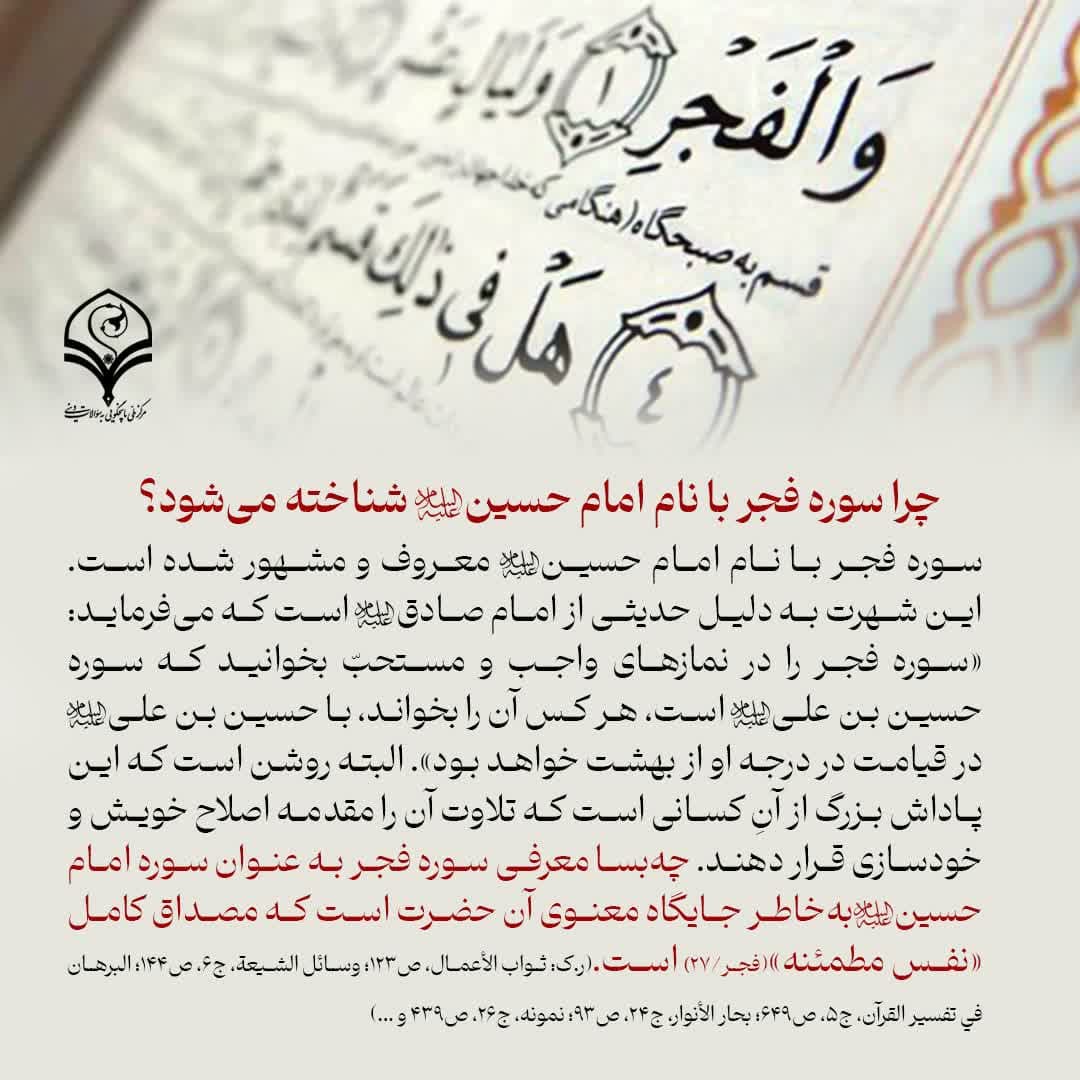 وَالْفَجْرِ ١ وَلَيَالٍ
قسم به صبحگاه (هنگامی که
٤ هَلْ فِی ذَٰلِكَ
مرکز ملی پاسخگویی به سؤالات دینی
چرا سوره فجر با نام امام حسین علیه‌السلام شناخته می‌شود؟
سوره فجر با نام امام حسین علیه‌السلام معروف و مشهور شده است.
این شهرت به دلیل حدیثی از امام صادق علیه‌السلام است که می‌فرماید:
«سوره فجر را در نمازهای واجب و مستحبّ بخوانید که سوره
حسین بن علی علیه‌السلام است، هر کس آن را بخواند، با حسین بن علی علیه‌السلام
در قیامت در درجه او از بهشت خواهد بود». البته روشن است که این
پاداش بزرگ از آنِ کسانی است که تلاوت آن را مقدمه اصلاح خویش و
خودسازی قرار دهند. چه‌بسا معرفی سوره فجر به عنوان سوره امام
حسین علیه‌السلام به‌خاطر جایگاه معنوی آن حضرت است که مصداق کامل
«نفس مطمئنه»(فجر/۲۷) است.(ر.ک: ثواب الأعمال، ص۱۲۳؛ وسائل الشیعة، ج۶، ص۱۴۴؛ البرهان
في تفسیر القرآن، ج۵، ص۶۴۹؛ بحار الأنوار، ج۲۴، ص۹۳؛ نمونه، ج۲۶، ص۴۳۹ و ...)